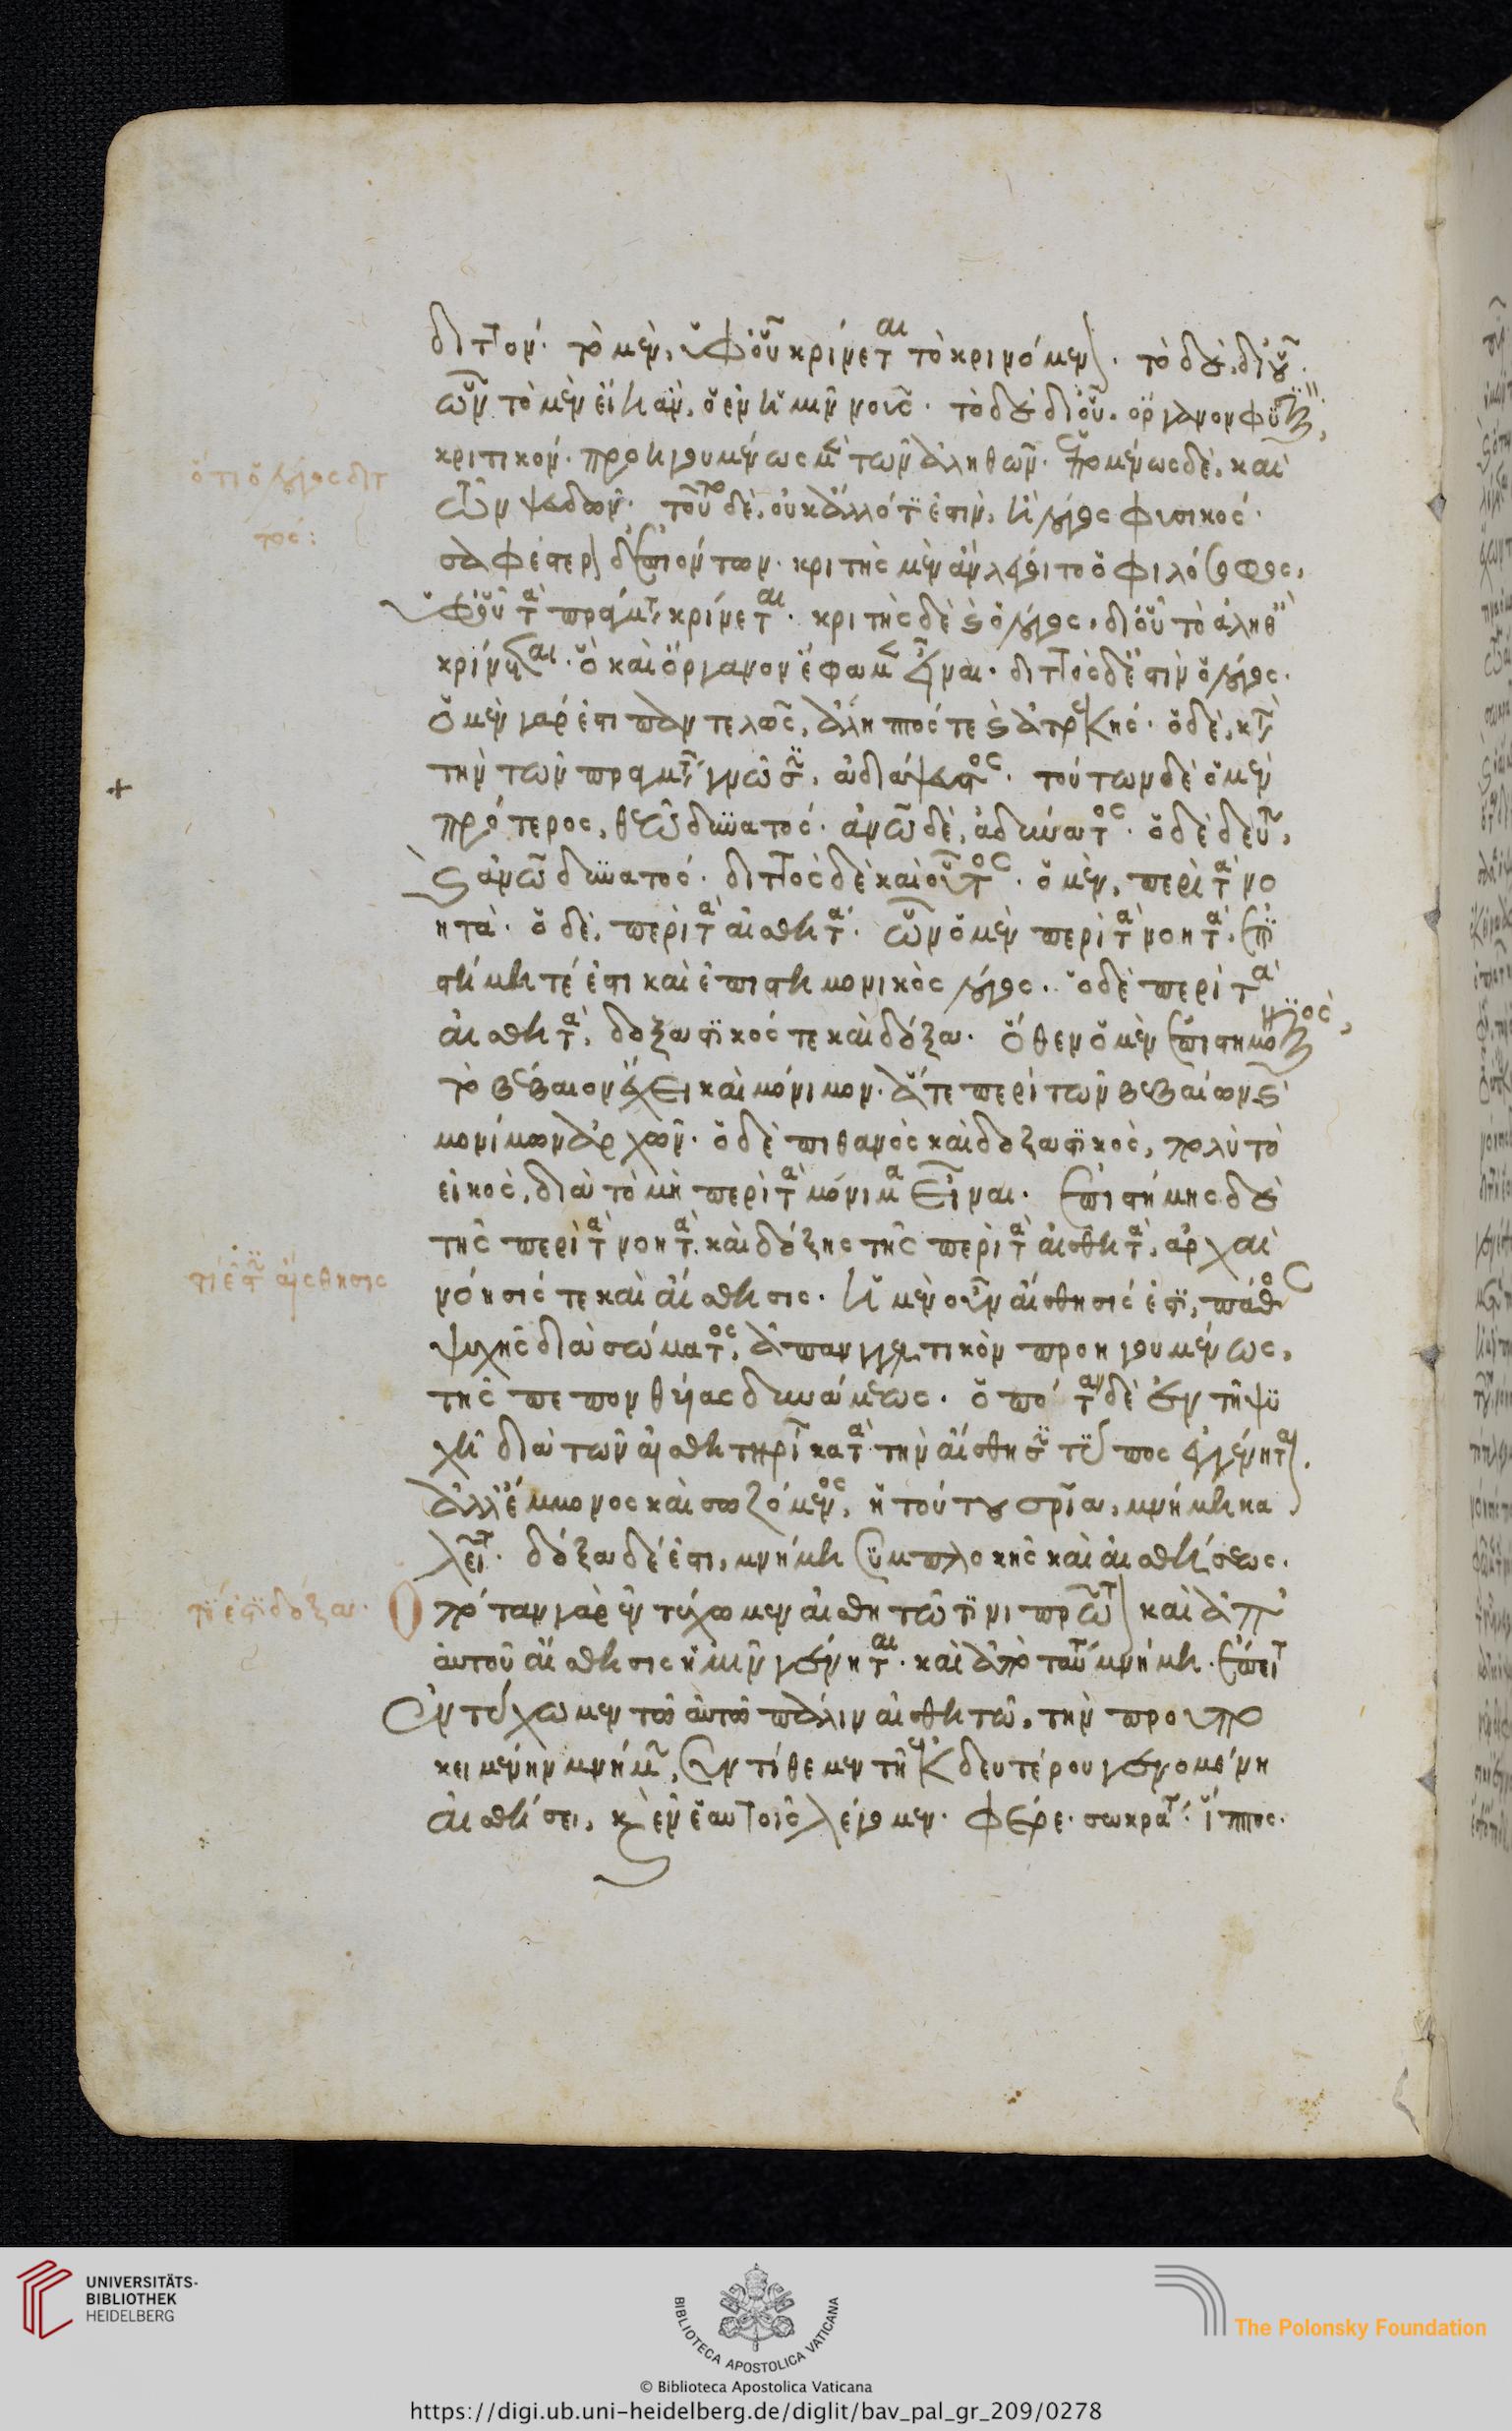 διττόν· τὸ μὲν, ὑφ' οὗ κρίνεται τὸ κρινόμενον· τὸ δὲ, δι' οὗ·
ὧν τὸ μὲν εἴη ἂν, ὁ ἐν ἡμῖν νοῦς· τὸ δὲ δι' οὗ, ὄργανον φυσικὸν,
κριτικόν· προηγουμένως μὲν τῶν ἀληθῶν· ἑπομένως δὲ, καὶ
ὅτι ὁ λόγος διτ
τός:
τῶν ψευδῶν· τοῦτο δὲ, οὐκ ἄλλό τί ἐστιν, ἢ λόγος φυσικός·
σαφέστερον δ' ἐπιόντων· κριτὴς μὲν ἂν λέγοιτο ὁ φιλόσοφος,
ὑφ' οὗ τὰ πράγματα κρίνεται· κριτὴς δὲ καὶ ὁ λόγος, δι' οὗ τὸ ἀληθὲς
κρίνεται· ὃ καὶ ὄργανον ἔφαμεν εἶναι· διττὸς δέ ἐστιν ὁ λόγος·
ὁ μὲν γάρ ἐστι παντελῶς, ἄληπτός τε καὶ ἀτρεκής· ὁ δὲ, κατὰ
τὴν τῶν πραγμάτων γνῶσιν, ἀδιάψευστος· τούτων δὲ ὁ μὲν
πρότερος, θεῷ δυνατός· ἀνθρώπῳ δὲ, ἀδύνατος· ὁ δὲ δεύτερος,
καὶ ἀνθρώπῳ δυνατός· διττὸς δὲ καὶ οὗτος· ὁ μὲν, περὶ τὰ νο
ητά· ὁ δὲ, περὶ τὰ αἰσθητά· ὧν ὁ μὲν περὶ τὰ νοητὰ, ἐπι
στήμη τέ ἐστι καὶ ἐπιστημονικὸς λόγος· ὁ δὲ περὶ τὰ
αἰσθητὰ, δοξαστικός τε καὶ δόξα· ὅθεν ὁ μὲν ἐπιστημονικὸς,
τὸ βέβαιον ἔχει καὶ μόνιμον· ἅτε περὶ τῶν βεβαίων καὶ
μονίμων ἀρχῶν· ὁ δὲ πιθανὸς καὶ δοξαστικὸς, πολὺ τὸ
εἰκὸς, διὰ τὸ μὴ περὶ τὰ μόνιμα εἶναι· ἐπιστήμης δὲ
τῆς περὶ τὰ νοητὰ, καὶ δόξης τῆς περὶ τὰ αἰσθητὰ, ἀρχαὶ
τί ἐστιν αἴσθησις
νόησίς τε καὶ αἴσθησις· ἡ μὲν οὖν αἴσθησίς ἐστι, πάθος
ψυχῆς διὰ σώματος, ἀπαγγελτικὸν προηγουμένως,
τῆς πεπονθυίας δυνάμεως· ὁπόταν δὲ ἐν τῇ ψυ
χῇ διὰ τῶν αἰσθητηρίων κατὰ τὴν αἴσθησιν τύπος ἐγγένηται,
ἀλλ' ἔμμονος καὶ σωζόμενος, ἡ τούτου σωτηρία, μνήμη κα
λεῖται· δόξα δέ ἐστι, μνήμης συμπλοκὴ καὶ αἰσθήσεως.
τί ἐστι δόξα·
Ὁπόταν γὰρ ἐντύχωμεν αἰσθητῷ τινι πρῶτον καὶ ἀπ'
αὐτοῦ αἴσθησις ἡμῖν γένηται· καὶ ἀπὸ ταύτης μνήμη· ἔπειτα
ἐντύχωμεν τῷ αὐτῷ πάλιν αἰσθητῷ, τὴν προυπο
κειμένην μνήμην, συντίθεμεν τῇ ἐκ δευτέρου γενομένῃ
αἰσθήσει, καὶ ἐν ἑαυτοῖς λέγομεν· φέρε· σωκράτης· ἵππος·
UNIVERSITÄTS-
BIBLIOTHEK
HEIDELBERG
BIBLIOTECA APOSTOLICA VATICANA
The Polonsky Foundation
© Biblioteca Apostolica Vaticana
https://digi.ub.uni-heidelberg.de/diglit/bav_pal_gr_209/0278